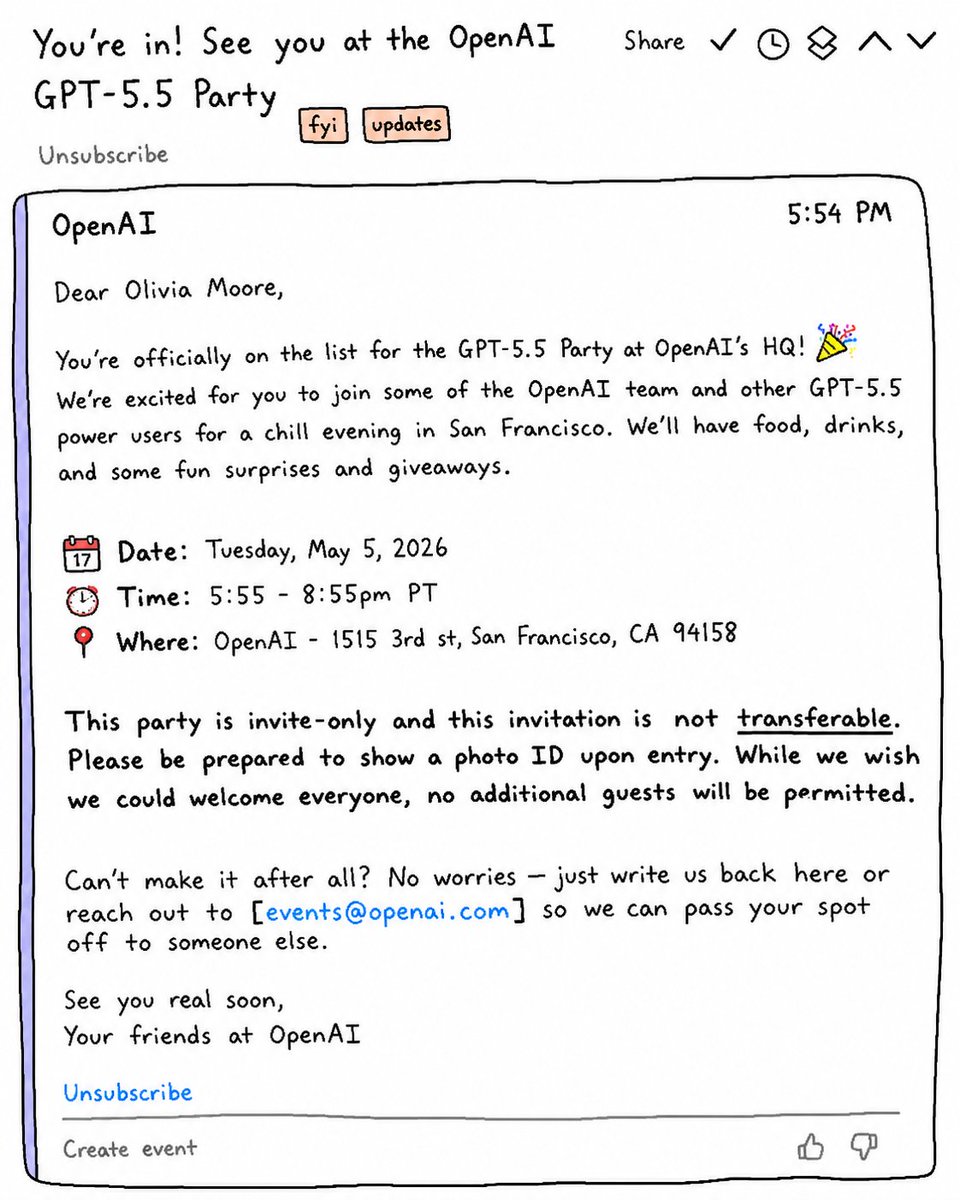 You're in! See you at the OpenAI
GPT-5.5 Party
fyi
updates
Share
Unsubscribe
OpenAI
5:54 PM
Dear Olivia Moore,
You're officially on the list for the GPT-5.5 Party at OpenAI's HQ! 🎉
We're excited for you to join some of the OpenAI team and other GPT-5.5
power users for a chill evening in San Francisco. We'll have food, drinks,
and some fun surprises and giveaways.
17
Date: Tuesday, May 5, 2026
Time: 5:55 - 8:55pm PT
Where: OpenAI - 1515 3rd st, San Francisco, CA 94158
This party is invite-only and this invitation is not transferable.
Please be prepared to show a photo ID upon entry. While we wish
we could welcome everyone, no additional guests will be permitted.
Can't make it after all? No worries — just write us back here or
reach out to [events@openai.com] so we can pass your spot
off to someone else.
See you real soon,
Your friends at OpenAI
Unsubscribe
Create event